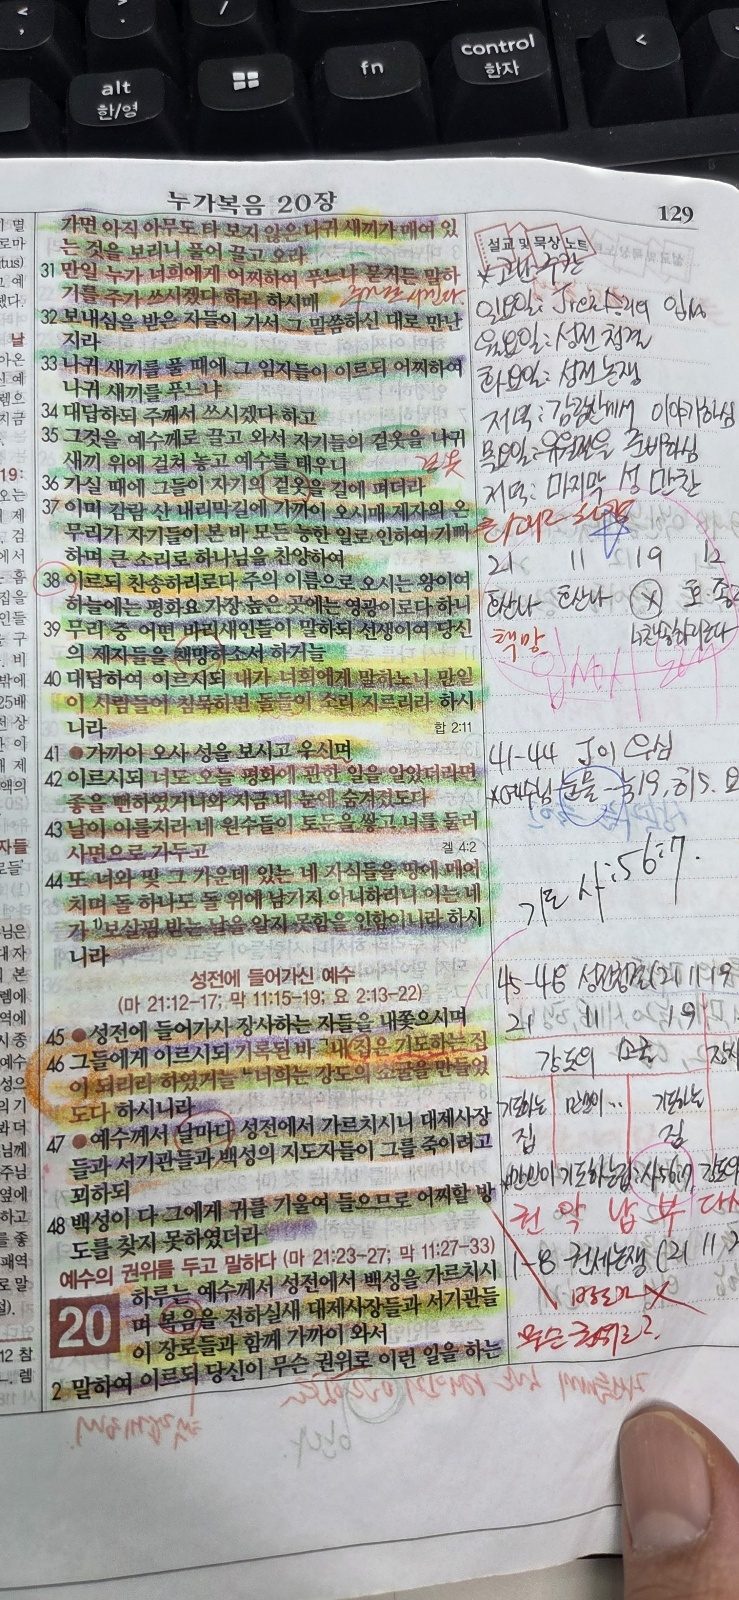 alt
한/영
fn
control
한자
누가복음 20장
129
가면 아직 아무도 타 보지 않은 나귀 새끼가 매여 있
는 것을 보리니 풀어 끌고 오라
31 만일 누가 너희에게 어찌하여 푸느냐 묻거든 말하
기를 주가 쓰시겠다 하라 하시매
32 보내심을 받은 자들이 가서 그 말씀하신 대로 만난
지라
33 나귀 새끼를 풀 때에 그 임자들이 이르되 어찌하여
나귀 새끼를 푸느냐
34 대답하되 주께서 쓰시겠다 하고
35 그것을 예수께로 끌고 와서 자기들의 겉옷을 나귀
새끼 위에 걸쳐 놓고 예수를 태우니
겉옷
36 가실 때에 그들이 자기의 겉옷을 길에 펴더라
37 이미 감람 산 내리막길에 가까이 오시매 제자의 온
무리가 자기들이 본 바 모든 능한 일로 인하여 기뻐
하며 큰 소리로 하나님을 찬양하여
38 이르되 찬송하리로다 주의 이름으로 오시는 왕이여
하늘에는 평화요 가장 높은 곳에는 영광이로다 하니
39 무리 중 어떤 바리새인들이 말하되 선생이여 당신
의 제자들을 책망하소서 하거늘
40 대답하여 이르시되 내가 너희에게 말하노니 만일
이 사람들이 침묵하면 돌들이 소리 지르리라 하시
니라
합 2:11
41 ●가까이 오사 성을 보시고 우시며
42 이르시되 너도 오늘 평화에 관한 일을 알았더라면
좋을 뻔하였거니와 지금 네 눈에 숨겨졌도다
43 날이 이를지라 네 원수들이 토둔을 쌓고 너를 둘러
사면으로 가두고
겔 4:2
44 또 너와 및 그 가운데 있는 네 자식들을 땅에 메어
치며 돌 하나도 돌 위에 남기지 아니하리니 이는 네
가 1)보살핌 받는 날을 알지 못함을 인함이니라 하시
니라
성전에 들어가신 예수
(마 21:12-17; 막 11:15-19; 요 2:13-22)
45 ●성전에 들어가사 장사하는 자들을 내쫓으시며
46 그들에게 이르시되 기록된 바 ㄱ내 집은 기도하는 집
이 되리라 하였거늘 ㄴ너희는 강도의 소굴을 만들었
도다 하시니라
47 ●예수께서 날마다 성전에서 가르치시니 대제사장
들과 서기관들과 백성의 지도자들이 그를 죽이려고
꾀하되
48 백성이 다 그에게 귀를 기울여 들으므로 어찌할 방
도를 찾지 못하였더라
예수의 권위를 두고 말하다 (마 21:23-27; 막 11:27-33)
20 하루는 예수께서 성전에서 백성을 가르치시
며 복음을 전하실새 대제사장들과 서기관들
이 장로들과 함께 가까이 와서
2 말하여 이르되 당신이 무슨 권위로 이런 일을 하는
설교 및 묵상 노트
*고난주간
일요일: 입성
월요일: 성전 청결
화요일: 성전논쟁
저녁: 감람산에서 이야기하심
목요일: 유월절을 준비하심
저녁: 마지막 성 만찬
21 11 19 12
호산나 호산나 X
찬송하리로다
책망
41-44 J이 우심
*예수님 눈물 - 눅19, 히5, 요
기도 사:56:7.
45-48 성전청결(21 11 19
21 11 19
강도의 소굴
기도하는 만민이... 기도하는
집 집
*만민이 기도하는집:사56:7, 강도의
권 악 납 부 다
1-8 권세논쟁 (21 11 2
무슨 권위로?